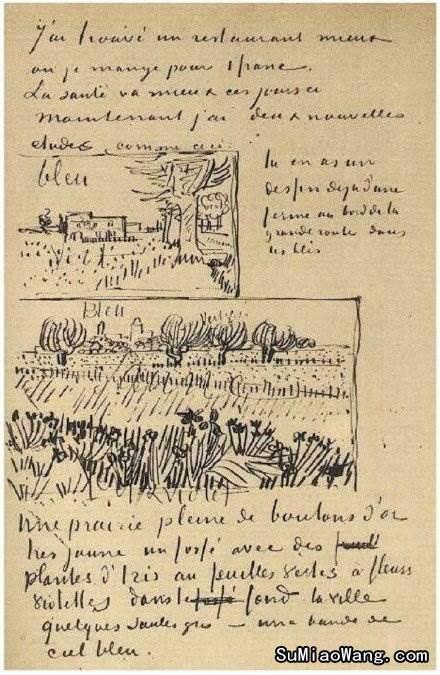 J'ai trouvé un restaurant mieux
ou je mange pour 1 franc.
La santé va mieux ces jours ci
maintenant j'ai deux nouvelles
etudes comme ceci
tu en as un
dessin deja d'une
ferme au bord de la
grande route dans
les blés
bleu
vert
Bleu
Vert
Violet
Une prairie pleine de boutons d'or
tres jaune un fossé avec des
plantes d'Iris au feuilles vertes à fleurs
violettes dans le fond la ville
quelques saules gris – une bande de
ciel bleu.
SuMiaoWang.com